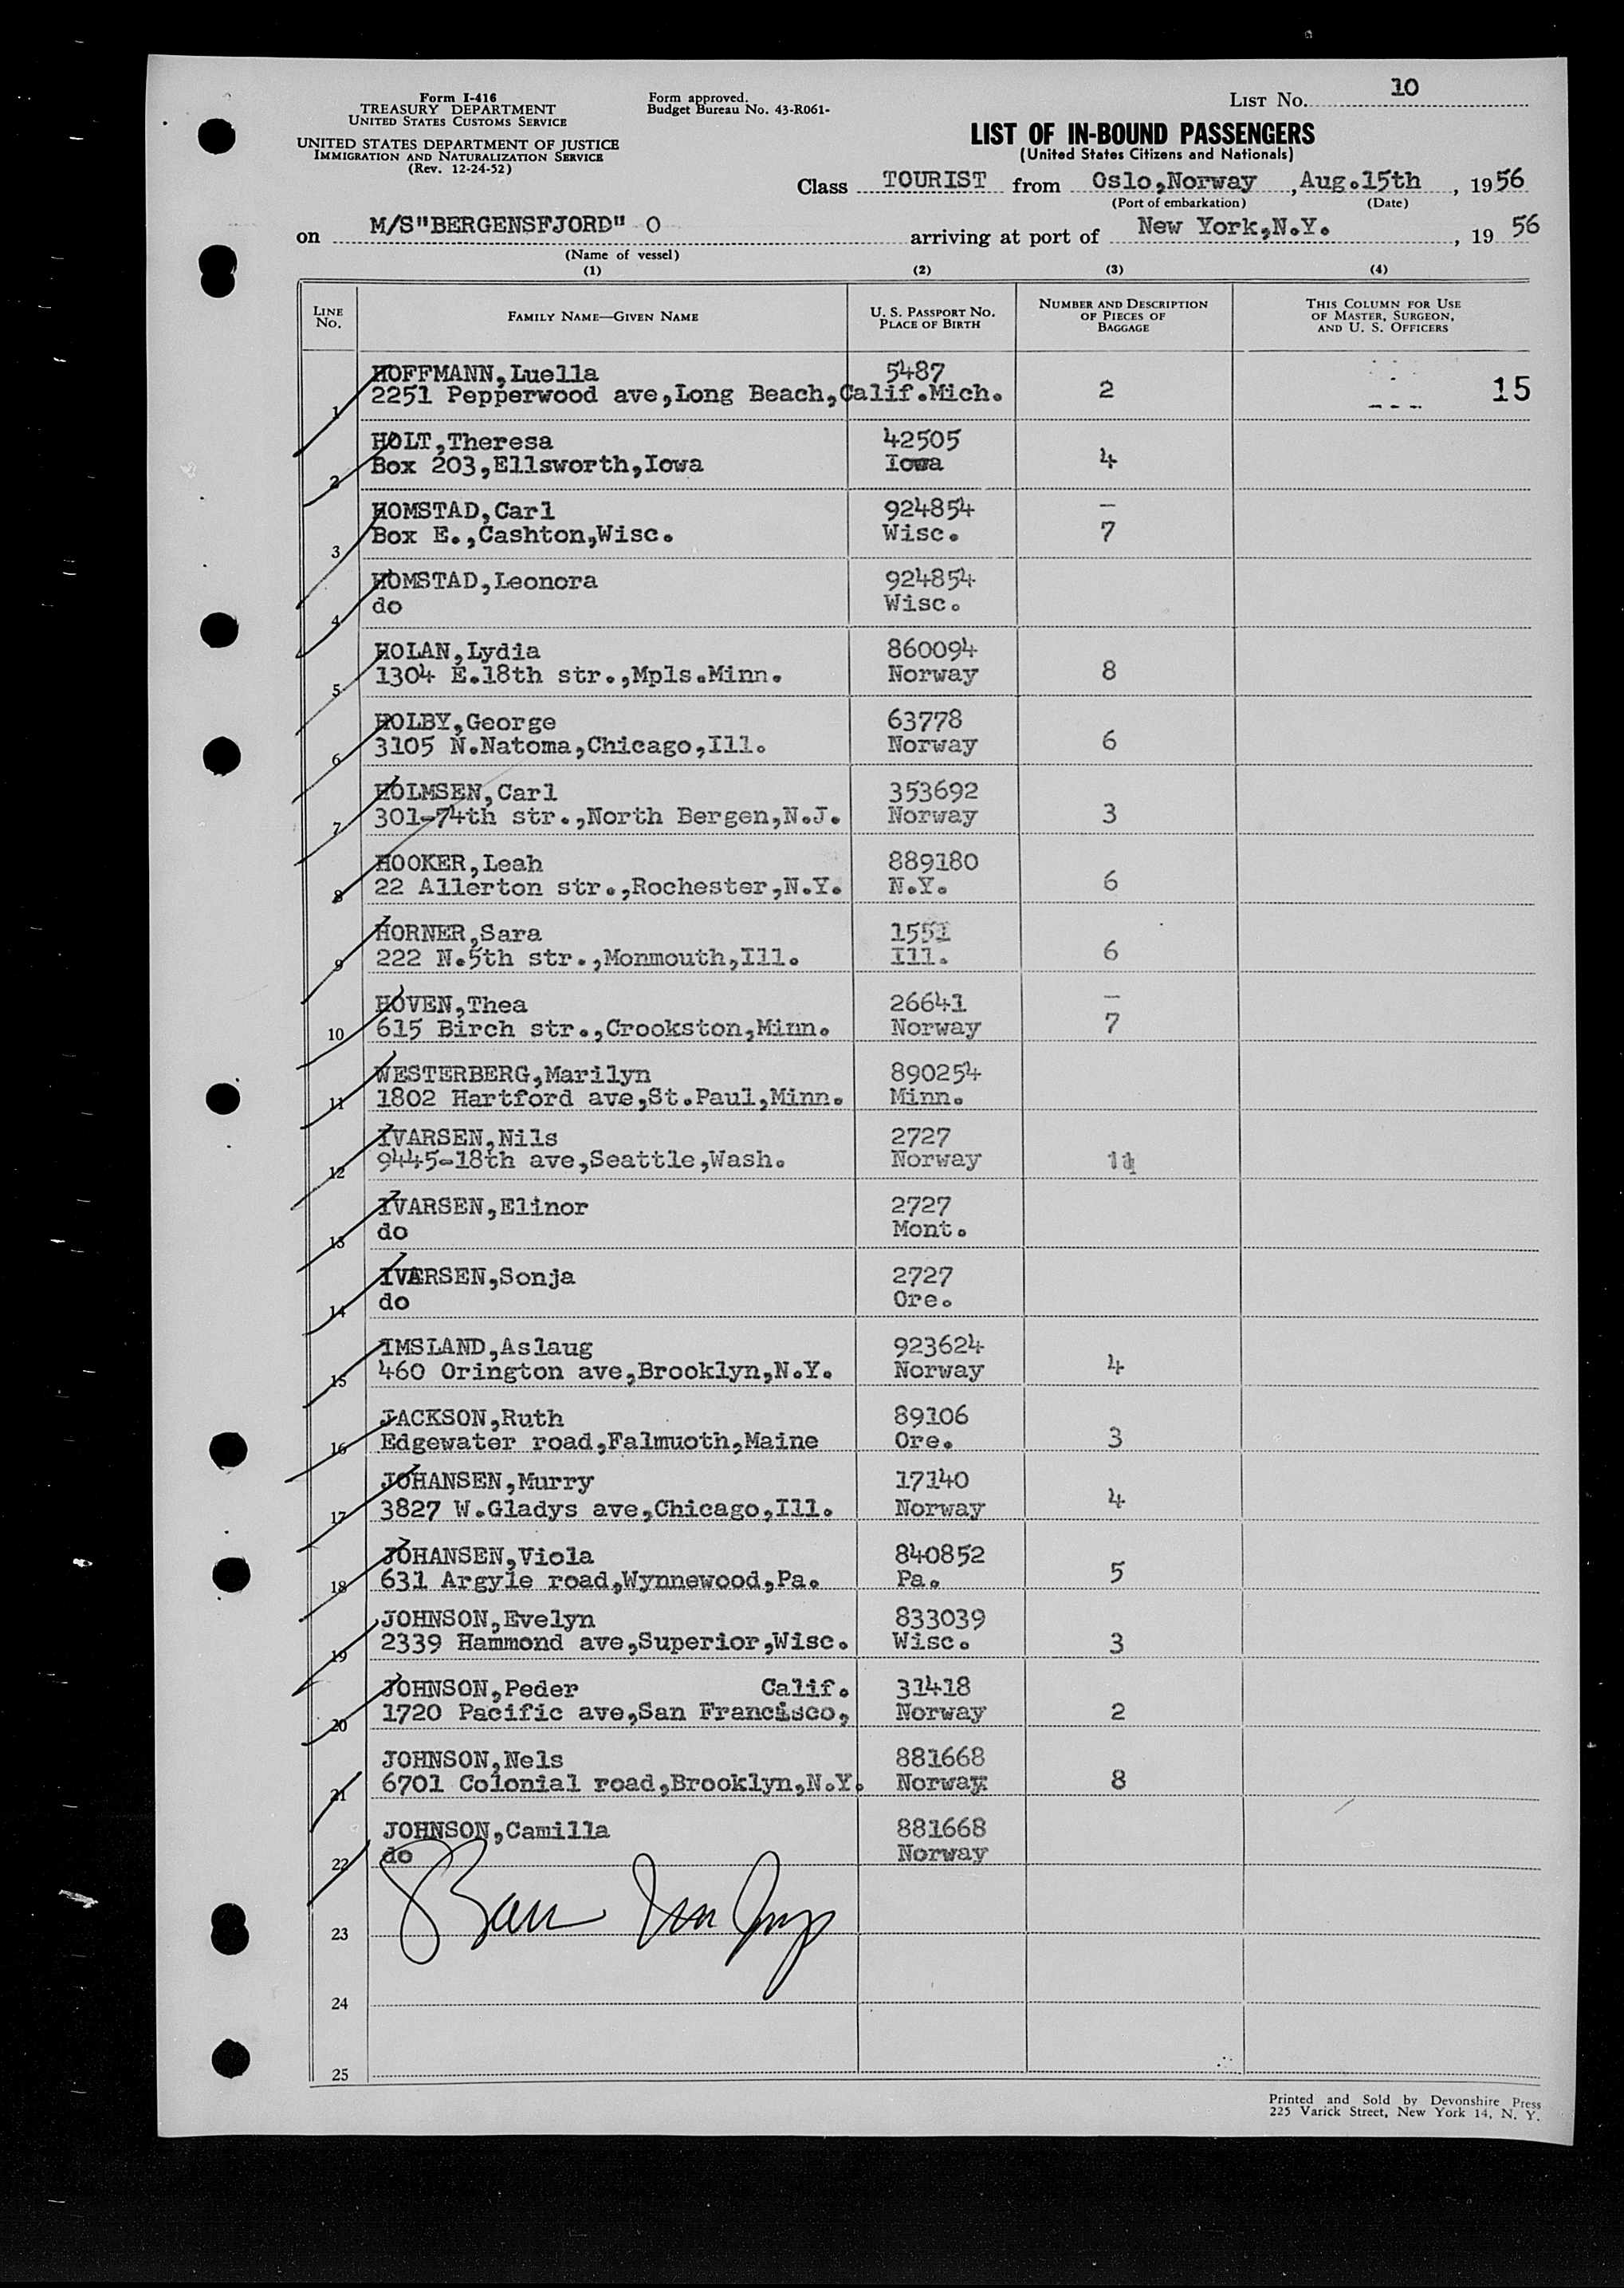 Form I-416
TREASURY DEPARTMENT
UNITED STATES CUSTOMS SERVICE
UNITED STATES DEPARTMENT OF JUSTICE
IMMIGRATION AND NATURALIZATION SERVICE
(Rev. 12-24-52)
Form approved.
Budget Bureau No. 43-R061-
LIST No. 10
LIST OF IN-BOUND PASSENGERS
(United States Citizens and Nationals)
Class TOURIST from Oslo,Norway , Aug.15th , 1956
(Port of embarkation) (Date)
on M/S"BERGENSFJORD" O arriving at port of New York,N.Y. , 19 56
(Name of vessel)
(1) (2) (3) (4)
LINE No. FAMILY NAME—GIVEN NAME U. S. PASSPORT NO. PLACE OF BIRTH NUMBER AND DESCRIPTION OF PIECES OF BAGGAGE THIS COLUMN FOR USE OF MASTER, SURGEON, AND U. S. OFFICERS
HOFFMANN,Luella 5487
1 2251 Pepperwood ave,Long Beach,Calif.Mich. 2 15
HOLT,Theresa 42505
2 Box 203,Ellsworth,Iowa Iowa 4
HOMSTAD,Carl 924854 —
3 Box E.,Cashton,Wisc. Wisc. 7
HOMSTAD,Leonora 924854
4 do Wisc.
HOLAN,Lydia 860094
5 1304 E.18th str.,Mpls.Minn. Norway 8
HOLBY,George 63778
6 3105 N.Natoma,Chicago,Ill. Norway 6
HOLMSEN,Carl 353692
7 301-74th str.,North Bergen,N.J. Norway 3
HOOKER,Leah 889180
8 22 Allerton str.,Rochester,N.Y. N.Y. 6
HORNER,Sara 1551
9 222 N.5th str.,Monmouth,Ill. Ill. 6
HOVEN,Thea 26641 —
10 615 Birch str.,Crookston,Minn. Norway 7
WESTERBERG,Marilyn 890254
11 1802 Hartford ave,St.Paul,Minn. Minn.
IVARSEN,Nils 2727
12 9445-18th ave,Seattle,Wash. Norway
IVARSEN,Elinor 2727
13 do Mont.
IVARSEN,Sonja 2727
14 do Ore.
IMSLAND,Aslaug 923624
15 460 Orington ave,Brooklyn,N.Y. Norway 4
JACKSON,Ruth 89106
16 Edgewater road,Falmuoth,Maine Ore. 3
JOHANSEN,Murry 17140
17 3827 W.Gladys ave,Chicago,Ill. Norway 4
JOHANSEN,Viola 840852
18 631 Argyle road,Wynnewood,Pa. Pa. 5
JOHNSON,Evelyn 833039
19 2339 Hammond ave,Superior,Wisc. Wisc. 3
JOHNSON,Peder Calif. 31418
20 1720 Pacific ave,San Francisco, Norway 2
JOHNSON,Nels 881668
21 6701 Colonial road,Brooklyn,N.Y. Norway 8
JOHNSON,Camilla 881668
22 do Norway
23
24
25
Printed and Sold by Devonshire Press
225 Varick Street, New York 14, N. Y.